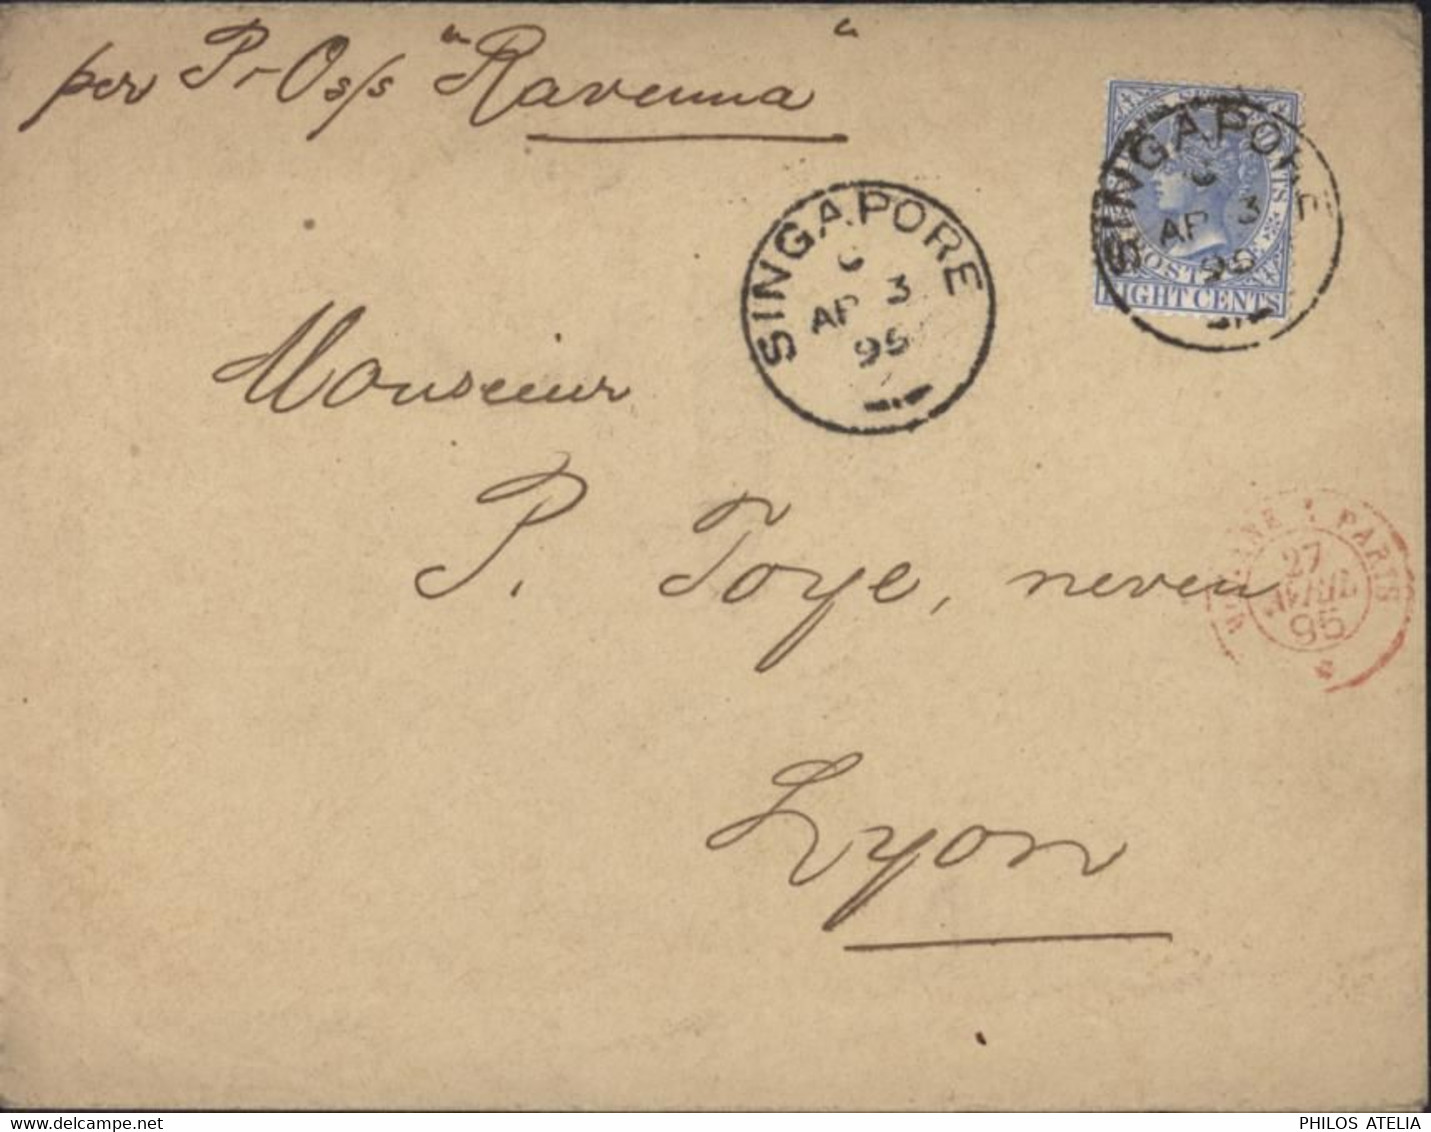 per P & O s/s "Ravenna"
SINGAPORE
C
AP 3
95
SINGAPORE
C
AP 3
95
POSTAGE
EIGHT CENTS
Monsieur
P. Toye, neveu
Lyon
MODANE A PARIS
27
AVRIL
95
PHILOS ATELIA